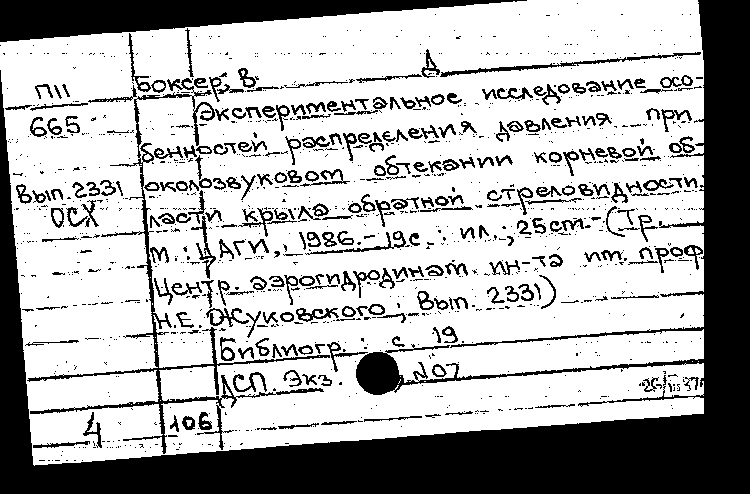 Д
П11 Боксер, В.
665 Экспериментальное исследование осо-
бенностей распределения давления при
Вып. 2331 околозвуковом обтекании корневой об-
ОСХ ласти крыла обратной стреловидности.
М.: ЦАГИ, 1986. - 19с. : ил.; 25см. - (Тр.
Центр. аэрогидродинам. ин-та им. проф
Н.Е. Жуковского; Вып. 2331)
Библиогр.: с. 19.
ДСП. Экз. N07
4 106